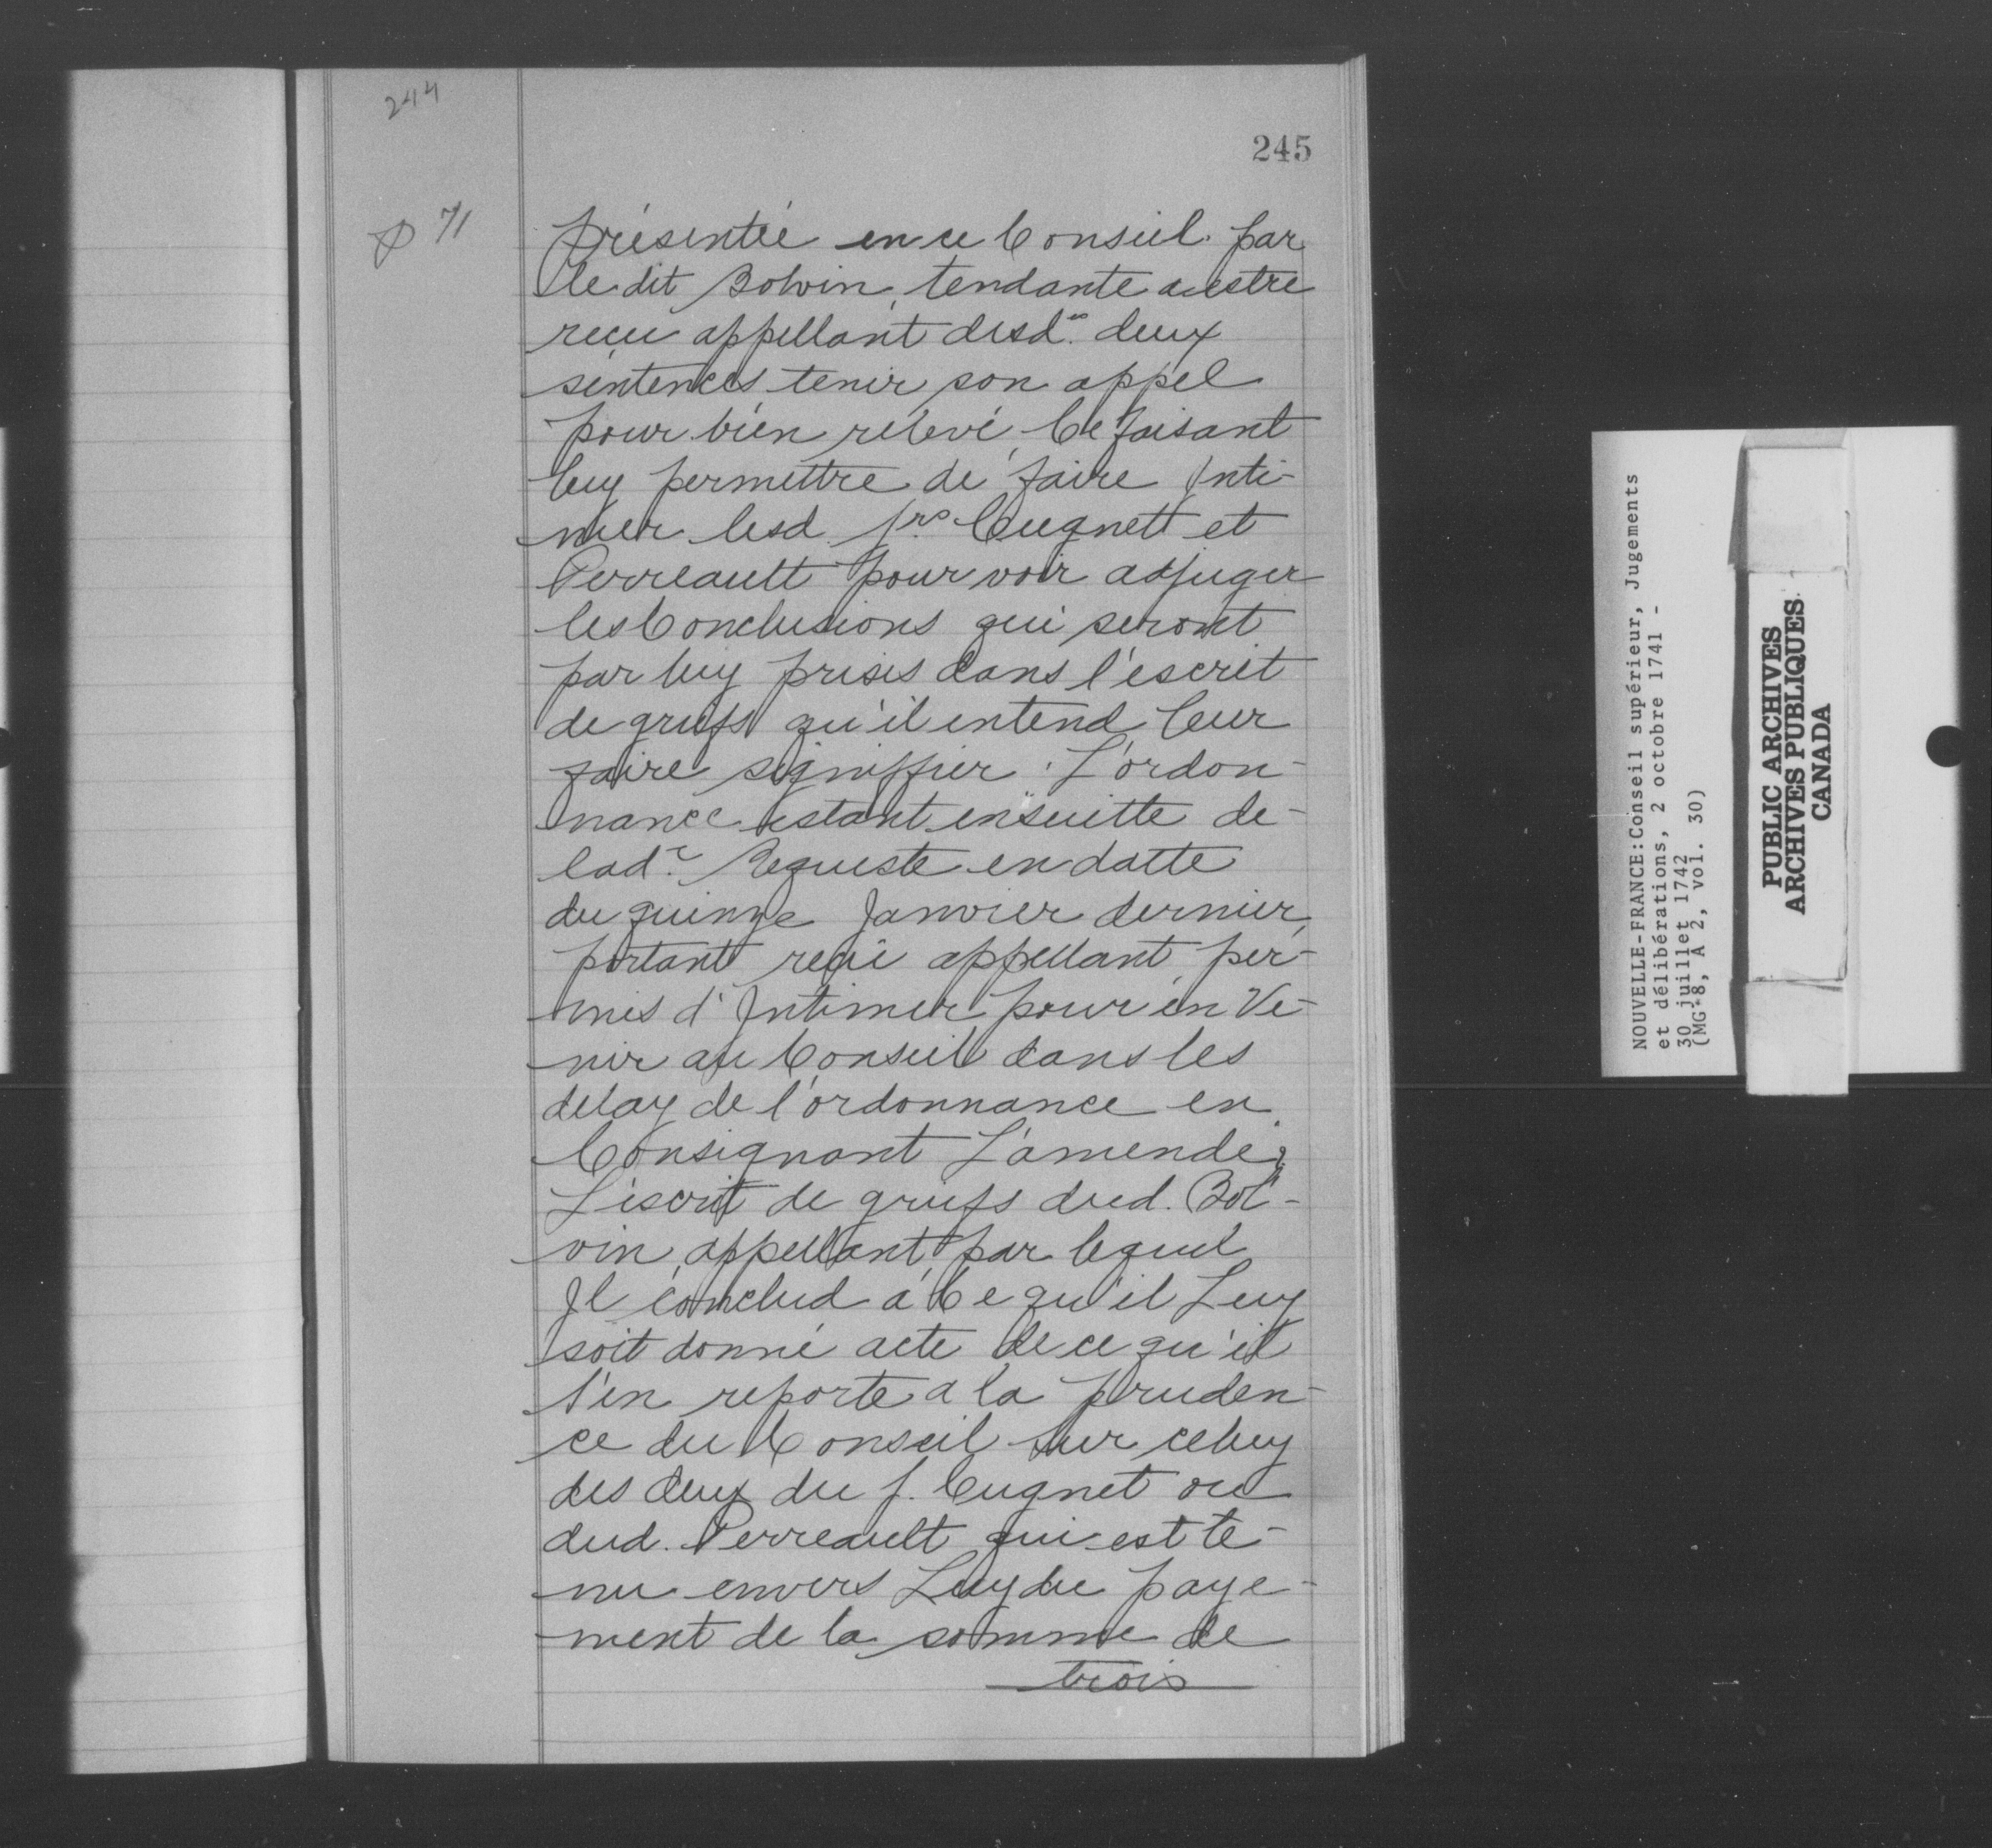 244
245
P 71
présentée en ce Conseil par
le dit Bolvin, tendante a estre
reçu appellant desd.es deux
sentences, tenir son appel
pour bien relevé, Ce faisant
luy permettre de faire Inti-
mer lesd. Srs Cugnett et
Perreault pour voir adjuger
les Conclusions qui seront
par luy prises dans l'escrit
de griefs qu'il entend leur
faire signiffier. L'ordon-
nance estant ensuitte de
lad.e Requeste en datte
du quinze Janvier dernier,
portant reçu appellant, per-
mis d'Intimer pour en Ve-
nir au Conseil dans les
delay de l'ordonnance en
Consignant L'amende;
L'escrit de griefs dud. Bol-
vin, appellant, par lequel
Il conclud à Ce qu'il Luy
soit donné acte de ce qu'il
s'en reporte a la pruden-
ce du Conseil sur celuy
des deux du S. Cugnet ou
dud. Perreault qui est te-
nu envers Luy du paye-
ment de la somme de
trois
NOUVELLE-FRANCE:Conseil supérieur, Jugements
et délibérations, 2 octobre 1741 -
30 juillet 1742
(MG 8, A 2, vol. 30)
PUBLIC ARCHIVES
ARCHIVES PUBLIQUES
CANADA